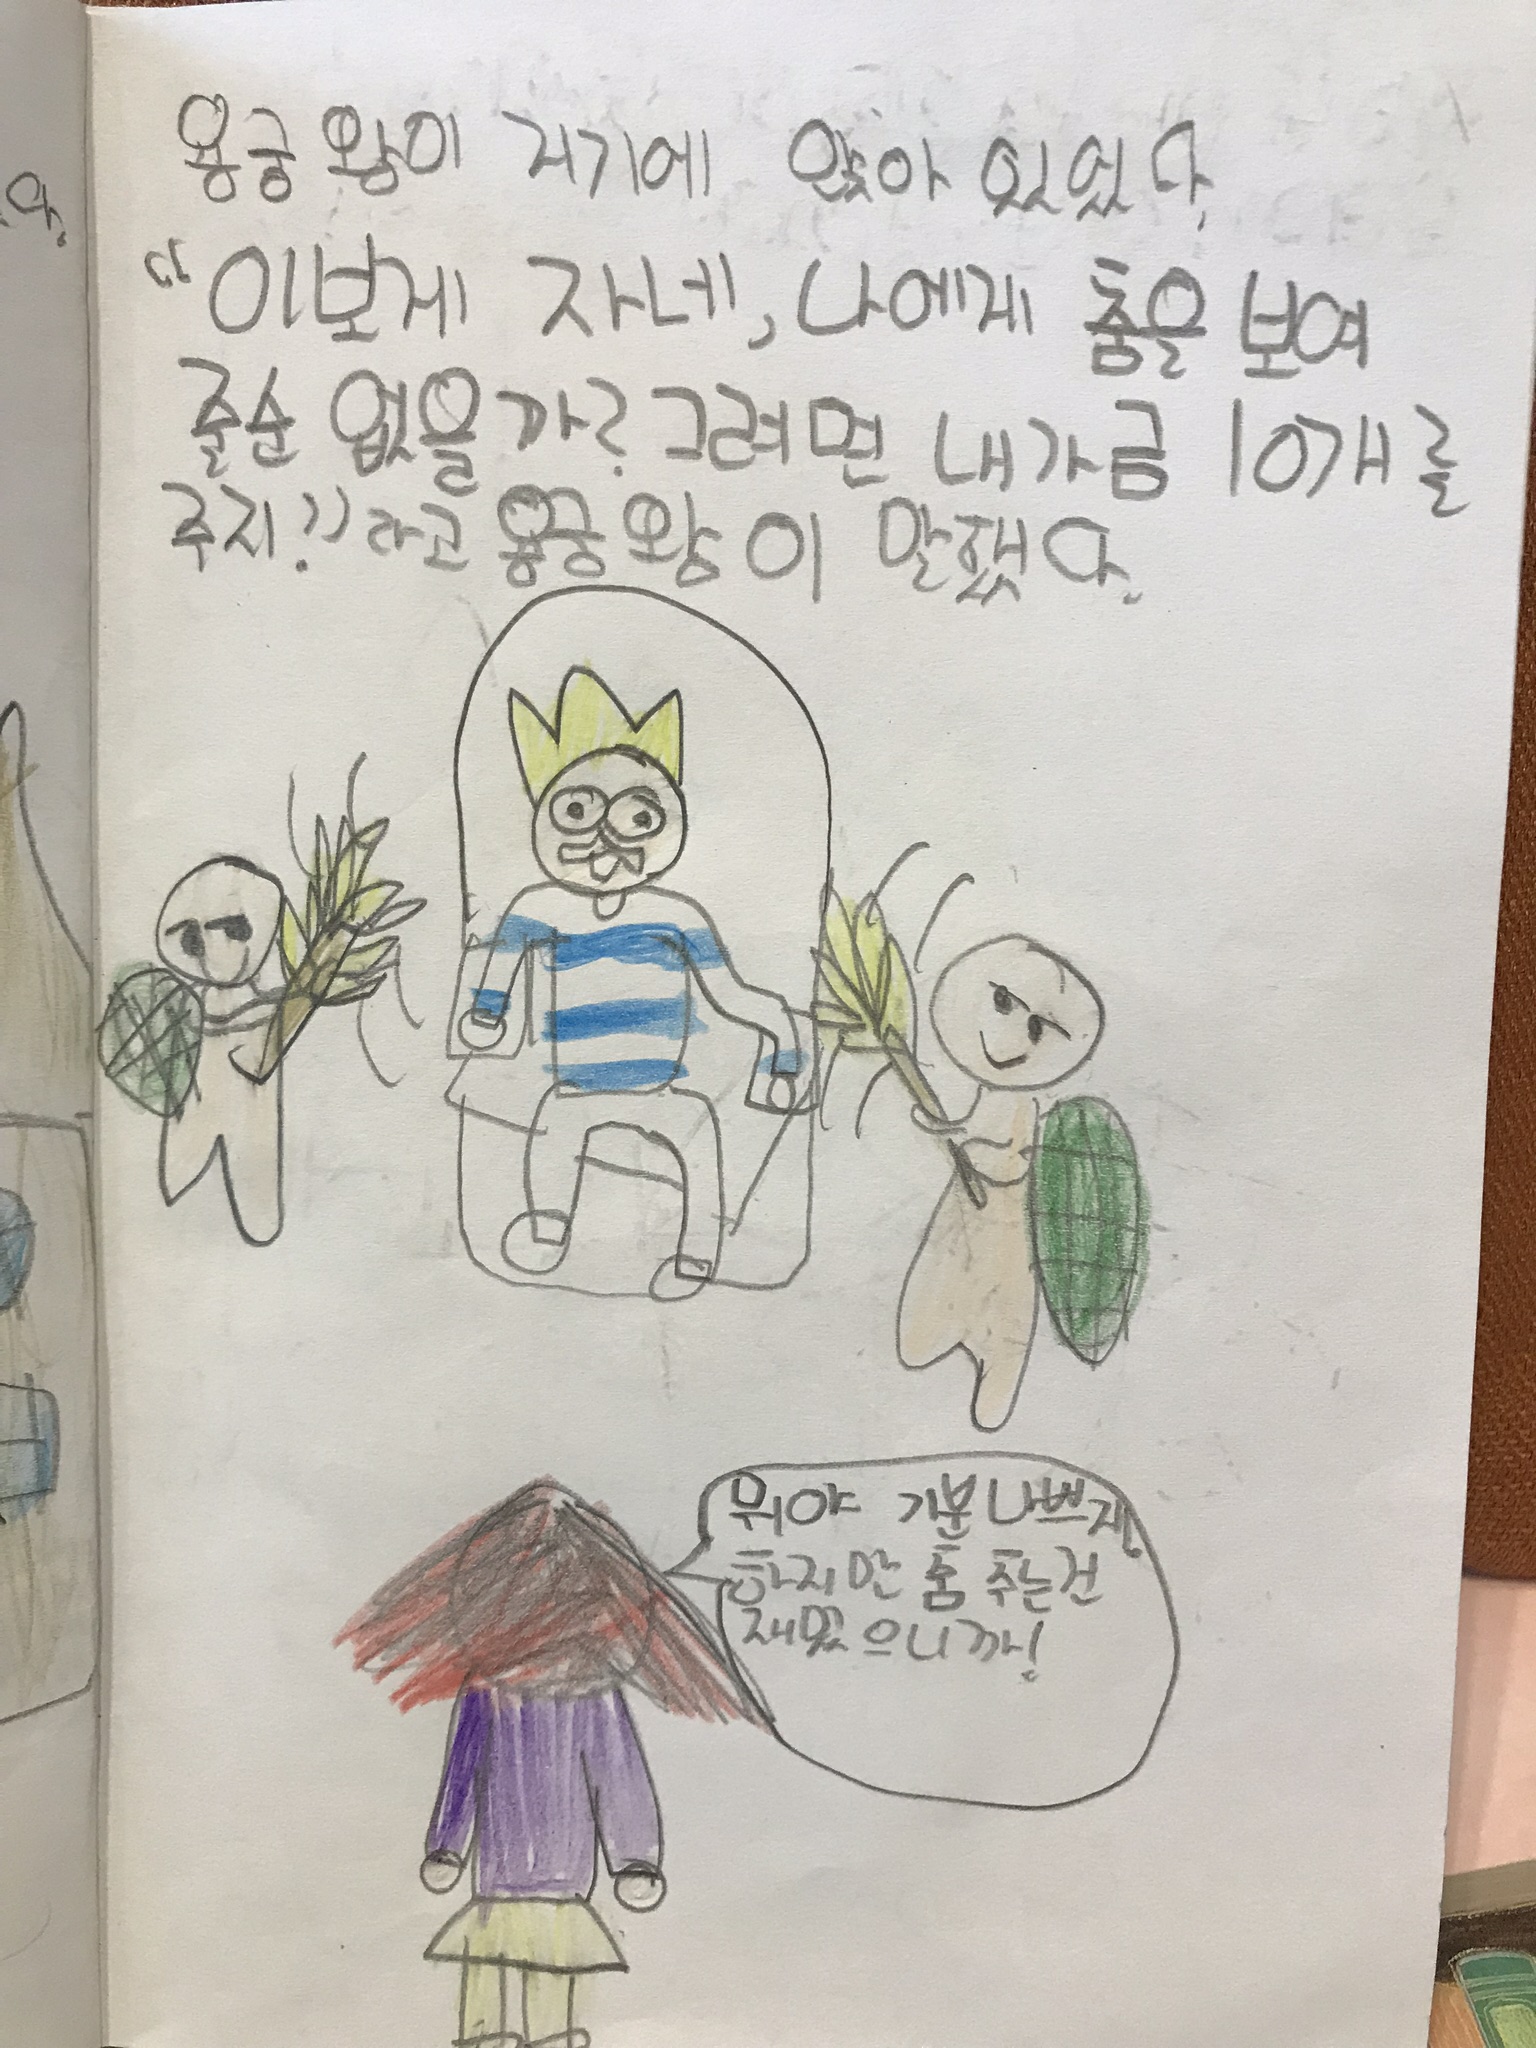 용궁왕이 저기에 앉아 있었다.
"이보게 자네, 나에게 춤을 보여
줄순 없을까? 그러면 내가 금 10개를
주지!"라고 용궁왕이 말했다.
뭐야 기분나쁘게,
하지만 춤 추는건
재밌으니까!